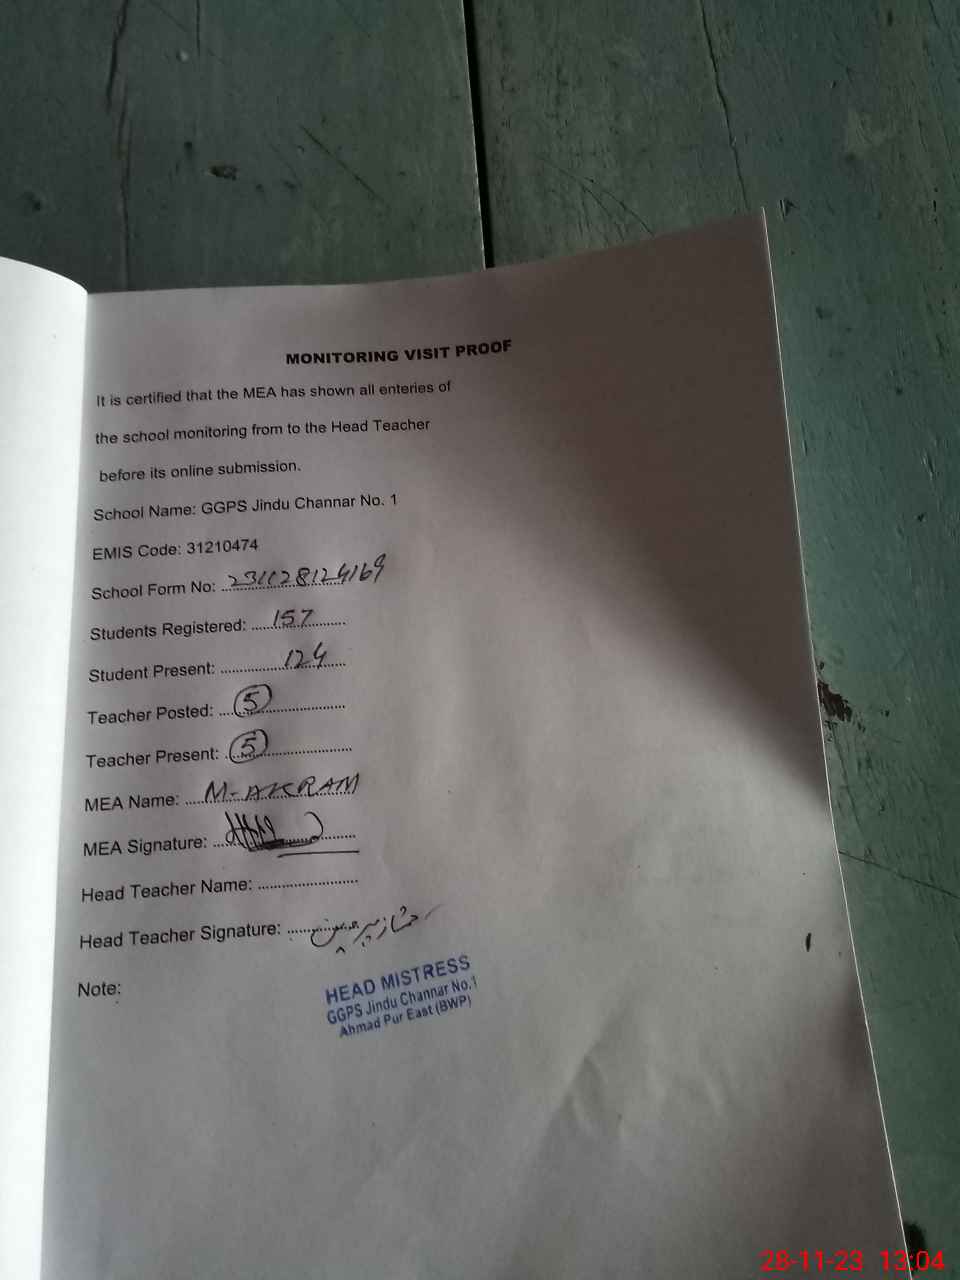 MONITORING VISIT PROOF
It is certified that the MEA has shown all enteries of
the school monitoring from to the Head Teacher
before its online submission.
School Name: GGPS Jindu Channar No. 1
EMIS Code: 31210474
School Form No: 231128124169
Students Registered: 157
Student Present: 124
Teacher Posted: 5
Teacher Present: 5
MEA Name: M-AKRAM
MEA Signature:
Head Teacher Name:
Head Teacher Signature:
Note:
HEAD MISTRESS
GGPS Jindu Channar No.1
Ahmad Pur East (BWP)
28-11-23 13:04